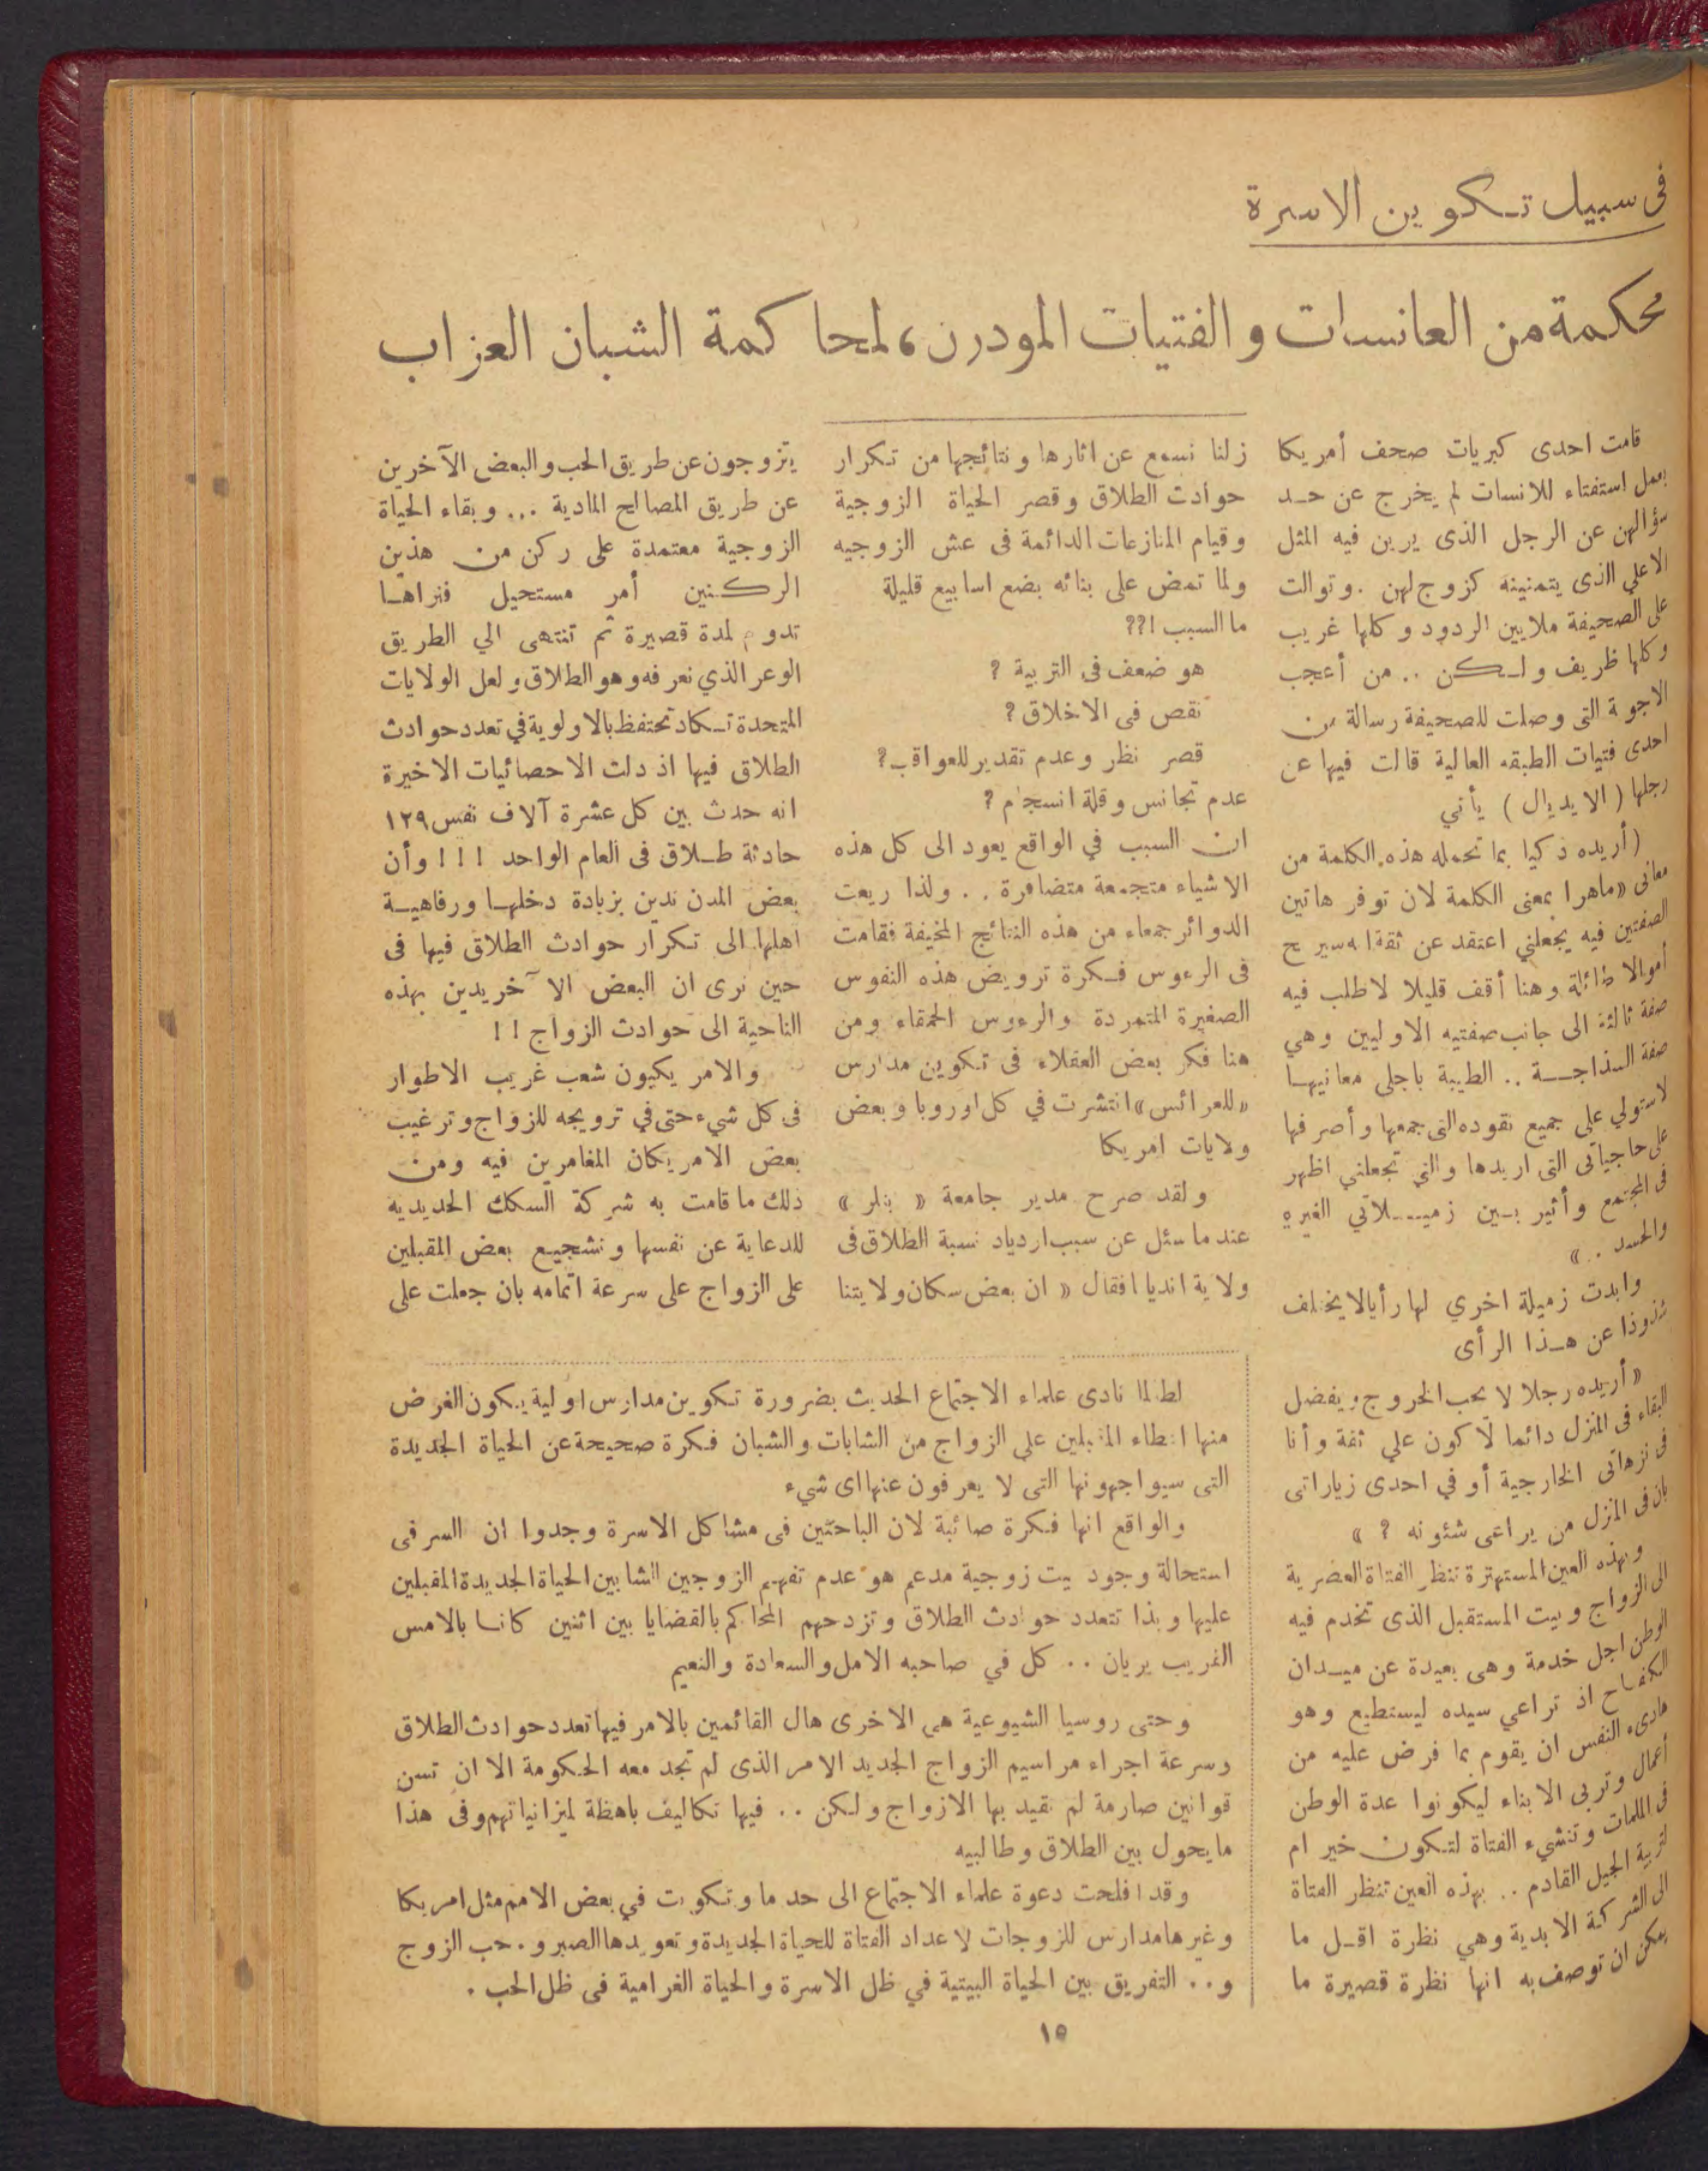 فى سبيل تكوين الاسرة
محكمة من العانسات والفتيات المودرن، لمحاكمة الشبان العزاب
قامت احدى كبريات صحف أمريكا
بعمل استفتاء للانسات لم يخرج عن حد
سؤالهن عن الرجل الذى يرين فيه المثل
الاعلي الذى يتمنينه كزوج لهن . وتوالت
على الصحيفة ملايين الردود وكلها غريب
وكلها ظريف ولكن .. من أعجب
الاجوبة التى وصلت للصحيفة رسالة من
احدى فتيات الطبقه العالية قالت فيها عن
رجلها ( الايديال ) يأتي
(أريده ذكيا بما تحمله هذه الكلمة من
معانى «ماهرا بمعنى الكلمة لان توفر هاتين
الصفتين فيه يجعلني اعتقد عن ثقة انه سيربح
أموالا طائلة وهنا أقف قليلا لاطلب فيه
صفة ثالثة الى جانب صفتيه الاوليين وهي
صفة السذاجة .. الطيبة باجلى معانيها
لاستولي على جميع نقوده التى جمعها وأصرفها
على حاجياتى التى اريدها والتي تجعلني اظهر
فى المجتمع وأثير بين زميلاتي الغيرة
والحسد . . »
وابدت زميلة اخري لها رأيا لا يختلف
شذوذا عن هذا الرأى
« أريده رجلا لا يحب الخروج ويفضل
البقاء فى المنزل دائما لأكون علي ثقة وأنا
فى نزهاتى الخارجية أو في احدى زياراتى
بان فى المنزل من يراعى شئونه ? »
وبهذه العين المستهترة تنظر الفتاة العصرية
الى الزواج وبيت المستقبل الذى تخدم فيه
الوطن اجل خدمة وهى بعيدة عن ميدان
الكفاح اذ تراعي سيده ليستطيع وهو
هادىء النفس ان يقوم بما فرض عليه من
أعمال وتربى الابناء ليكونوا عدة الوطن
فى الملمات وتنشيء الفتاة لتكون خير ام
لتربية الجيل القادم .. بهذه العين تنظر الفتاة
الى الشركة الابدية وهي نظرة اقل ما
يمكن ان توصف به انها نظرة قصيرة ما
زلنا نسمع عن اثارها ونتائجها من تكرار
حوادث الطلاق وقصر الحياة الزوجية
وقيام المنازعات الدائمة فى عش الزوجيه
ولما تمض على بنائه بضع اسابيع قليلة
ما السبب !??
هو ضعف فى التربية ?
نقص فى الاخلاق ?
قصر نظر وعدم تقدير للعواقب ?
عدم تجانس وقلة انسجام ?
ان السبب في الواقع يعود الى كل هذه
الاشياء متجمعة متضافرة . . ولذا ريعت
الدوائر جمعاء من هذه النتائج المخيفة فقامت
فى الرءوس فكرة ترويض هذه النفوس
الصغيرة المتمردة والرءوس الحمقاء ومن
هنا فكر بعض العقلاء فى تكوين مدارس
«للعرائس» انتشرت في كل اوروبا وبعض
ولايات امريكا
ولقد صرح مدير جامعة « بتلر »
عندما سئل عن سبب ازدياد نسبة الطلاق فى
ولاية انديانا فقال « ان بعض سكان ولايتنا
يتزوجون عن طريق الحب والبعض الآخرين
عن طريق المصالح المادية ... وبقاء الحياة
الزوجية معتمدة على ركن من هذين
الركنين أمر مستحيل فنراها
تدوم لمدة قصيرة ثم تنتهى الي الطريق
الوعر الذي نعرفه وهو الطلاق ولعل الولايات
المتحدة تكاد تحتفظ بالاولوية في تعدد حوادث
الطلاق فيها اذ دلت الاحصائيات الاخيرة
انه حدث بين كل عشرة آلاف نفس ١٢٩
حادثة طلاق فى العام الواحد ! ! ! وأن
بعض المدن تدين بزيادة دخلها ورفاهية
اهلها الى تكرار حوادث الطلاق فيها فى
حين نرى ان البعض الآخر يدين بهذه
الناحية الى حوادث الزواج ! !
والامريكيون شعب غريب الاطوار
فى كل شيء حتى في ترويجه للزواج وترغيب
بعض الامريكان المغامرين فيه ومن
ذلك ما قامت به شركة السكك الحديديه
للدعاية عن نفسها وتشجيع بعض المقبلين
على الزواج على سرعة اتمامه بان جعلت على
لطالما نادى علماء الاجتماع الحديث بضرورة تكوين مدارس اولية يكون الغرض
منها اعطاء المقبلين على الزواج من الشابات والشبان فكرة صحيحة عن الحياة الجديدة
التى سيواجهونها التى لا يعرفون عنها اى شيء
والواقع انها فكرة صائبة لان الباحثين فى مشاكل الاسرة وجدوا ان السر فى
استحالة وجود بيت زوجية مدعم هو عدم تفهم الزوجين الشابين الحياة الجديدة المقبلين
عليها وبذا تتعدد حوادث الطلاق وتزدحم المحاكم بالقضايا بين اثنين كانا بالامس
القريب يريان .. كل في صاحبه الامل والسعادة والنعيم
وحتى روسيا الشيوعية هى الاخرى هال القائمين بالامر فيها تعدد حوادث الطلاق
وسرعة اجراء مراسيم الزواج الجديد الامر الذى لم تجد معه الحكومة الا ان تسن
قوانين صارمة لم تقيد بها الازواج ولكن .. فيها تكاليف باهظة لميزانياتهم وفى هذا
ما يحول بين الطلاق وطالبيه
وقد افلحت دعوة علماء الاجتماع الى حد ما وتكونت في بعض الامم مثل امريكا
وغيرها مدارس للزوجات لاعداد الفتاة للحياة الجديدة وتعويدها الصبر و.حب الزوج
و.. التفريق بين الحياة البيتية في ظل الاسرة والحياة الغرامية فى ظل الحب .
١٥